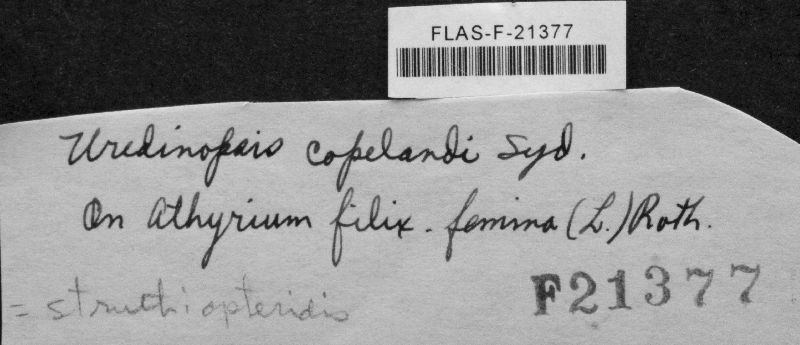 FLAS-F-21377
Uredinopsis copelandi Syd.
On Athyrium filix-femina (L.) Roth.
= struthiopteridis
F21377